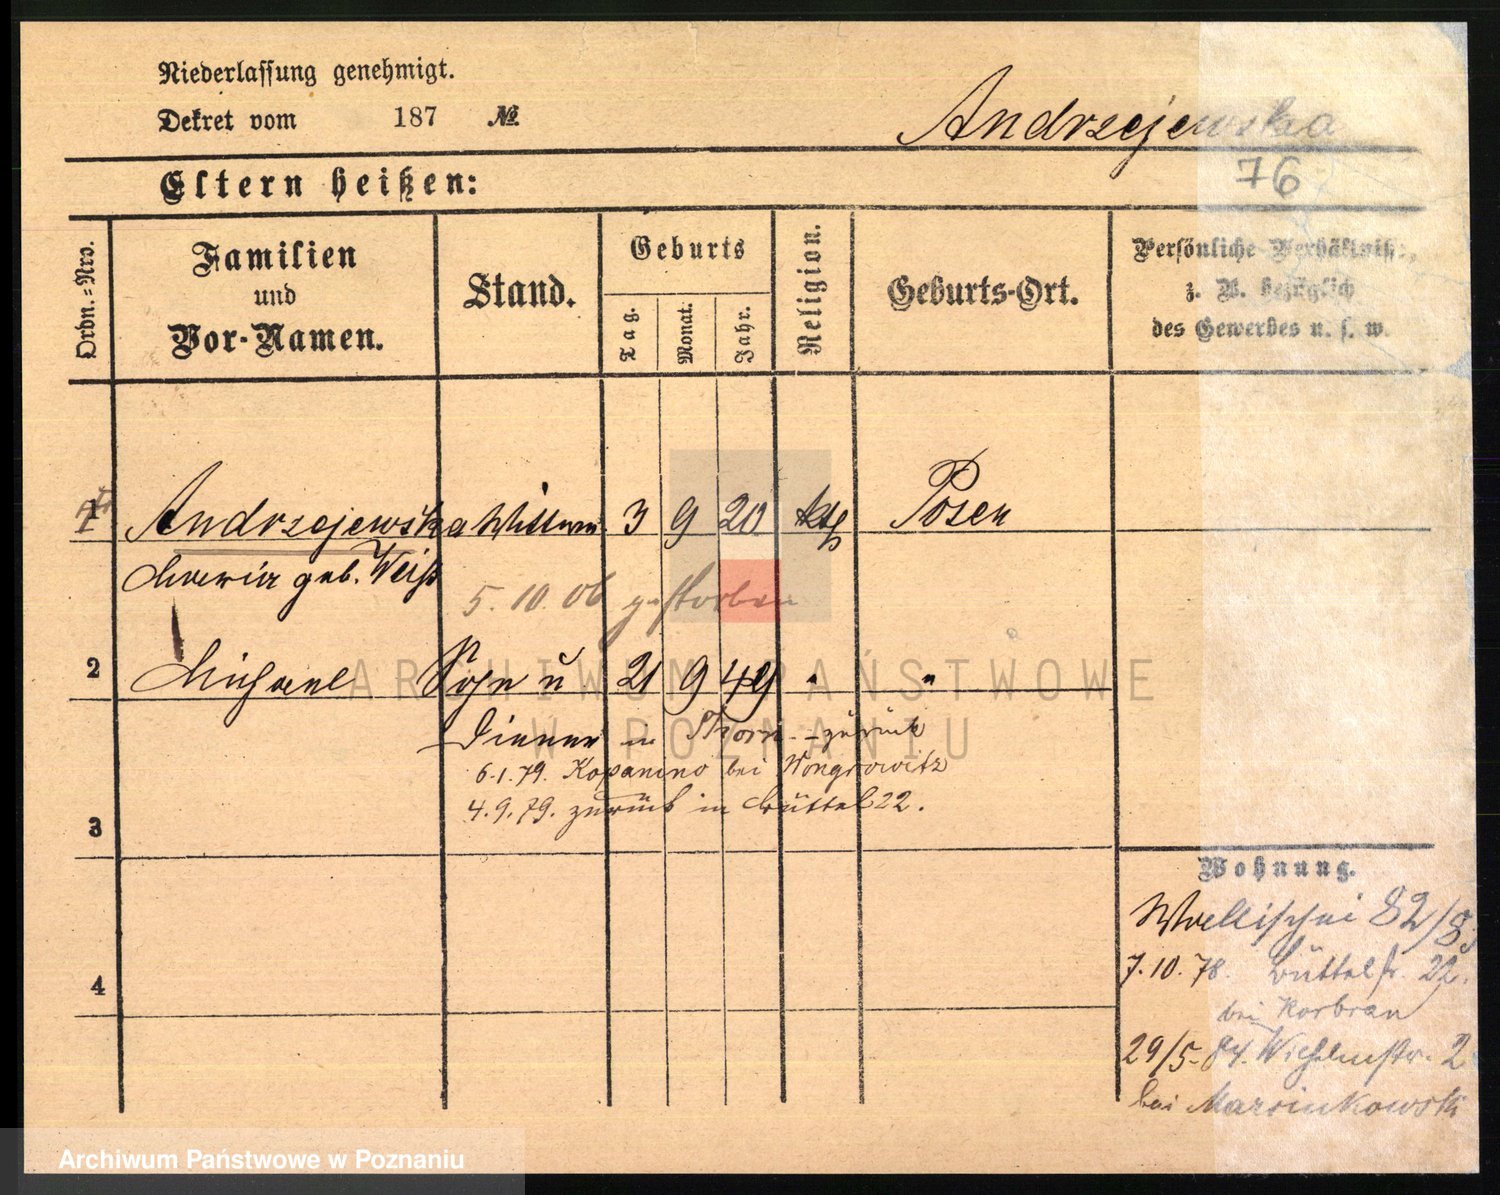 Niederlassung genehmigt.
Dekret vom 187 №.
Andrzejewska
76
Eltern heißen:
Ordn.-Nro.
Familien
und
Vor-Namen.
Stand.
Geburts
Tag.
Monat.
Jahr.
Religion.
Geburts-Ort.
Persönliche Verhältniss.,
z. B. bezüglich
des Gewerbes u. s. w.
1 Andrzejewska Wittwe 3 9 20 kth Posen
geb. Weiß
5. 10. 06 gestorben
2 Michael Sohn u 21 9 49 " "
Diener in Thorn - zurück
6.1.79. Kopanino bei Wongrowitz
4.9.79. zurück in Büttel 22.
3
4
Wohnung.
Wallischei 82/83
7.10.78. Büttelstr. 22.
bei Korbran
29/5.84. Wilhelmstr. 2
bei Marcinkowski
ARCHIWUM PAŃSTWOWE
W POZNANIU
Archiwum Państwowe w Poznaniu